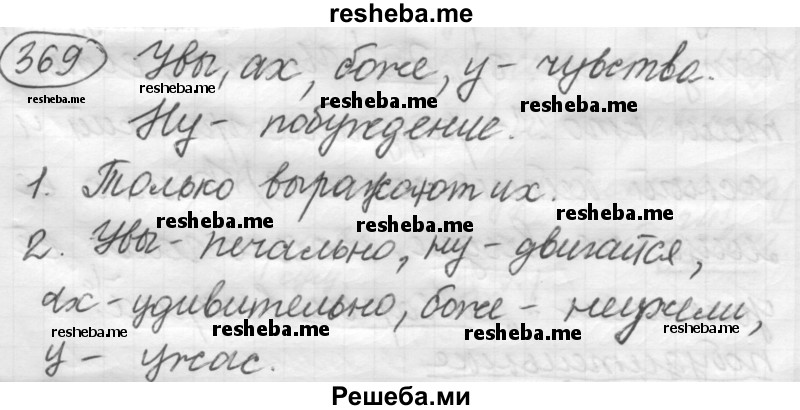 resheba.me
369 Увы, ах, боже, у - чувства.
resheba.me resheba.me resheba.me
Ну - побуждение.
1. Только выражают их.
resheba.me resheba.me resheba.me
2. Увы - печально, ну - двигайся,
ах - удивительно, боже - неужели,
resheba.me resheba.me resheba.me resheba.me
у - ужас.
Решеба.ми